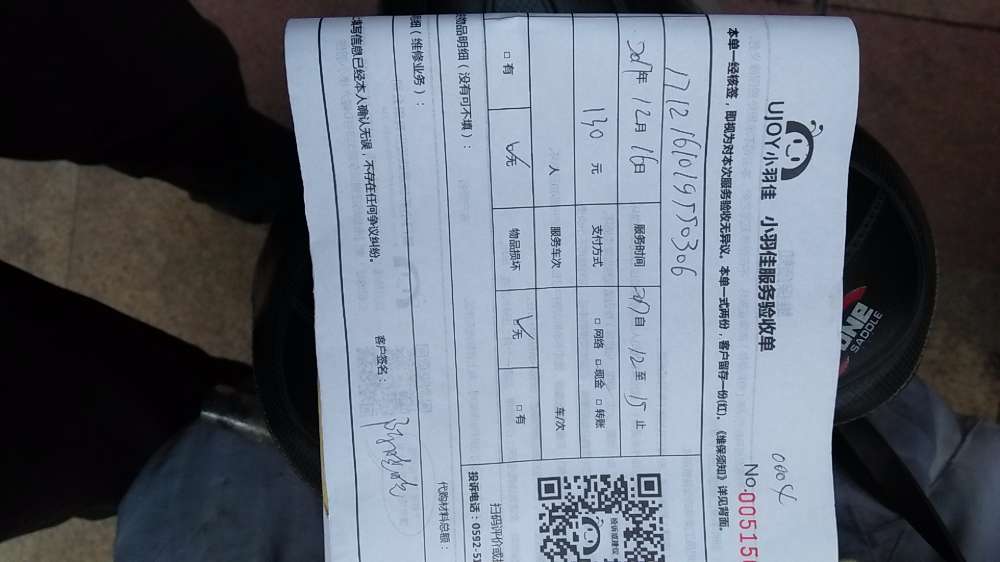 UJOY小羽佳 小羽佳服务验收单
0004
No.005150
本单一经核签，即视为对本次服务验收无异议。本单一式两份，客户留存一份(红)。《维保须知》详见背面。
17121610195550306
2017年 12月 16日 服务时间 自 12 至 15 止
130 元 支付方式 □ 网络 □ 现金 □ 转账
人 服务车次 车/次
□ 有 ☑ 无 物品损坏 ☑ 无 □ 有
物品明细（没有可不填）：
扫码评价或
投诉电话：0592-5
明细（维修业务）：
代购材料总额：
填写信息已经本人确认无误，不存在任何争议纠纷。 客户签名：
投诉或建议
ONE
SADDLE